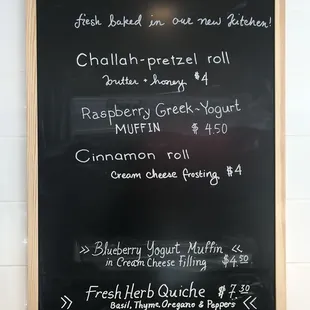 fresh baked in our new kitchen!
Challah-pretzel roll
butter + honey $4
Raspberry Greek-Yogurt
MUFFIN $4.50
Cinnamon roll
cream cheese frosting $4
>> Blueberry Yogurt Muffin <<
in Cream Cheese Filling $4.50
>> Fresh Herb Quiche $7.30 <<
Basil, Thyme, Oregano & Peppers